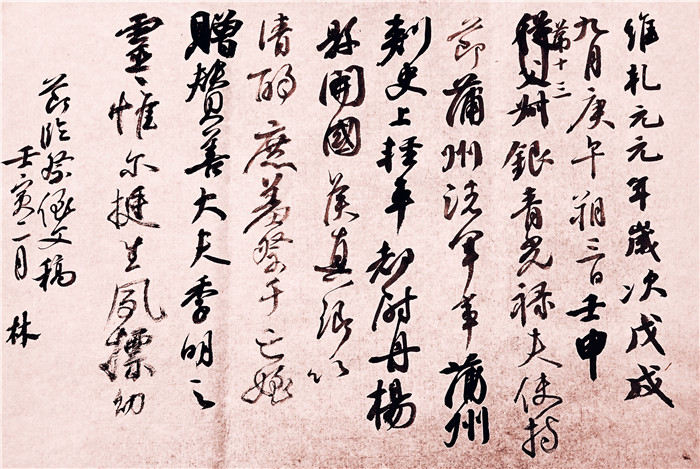 維乾元元年歲次戊戌
九月庚午朔三日壬申
第十三
從父叔銀青光祿夫使持
節蒲州諸軍事蒲州
刺史上輕車都尉丹楊
縣開國侯真卿以
清酌庶羞祭于亡姪
贈贊善大夫季明之
靈惟尔挺生夙標幼
節臨祭侄文稿
壬寅二月 林